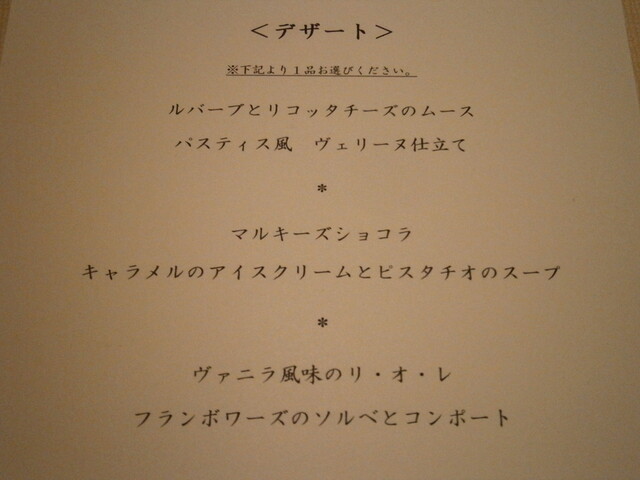 ＜デザート＞
※下記より１品お選びください。
ルバーブとリコッタチーズのムース
パスティス風　ヴェリーヌ仕立て
*
マルキーズショコラ
キャラメルのアイスクリームとピスタチオのスープ
*
ヴァニラ風味のリ・オ・レ
フランボワーズのソルベとコンポート